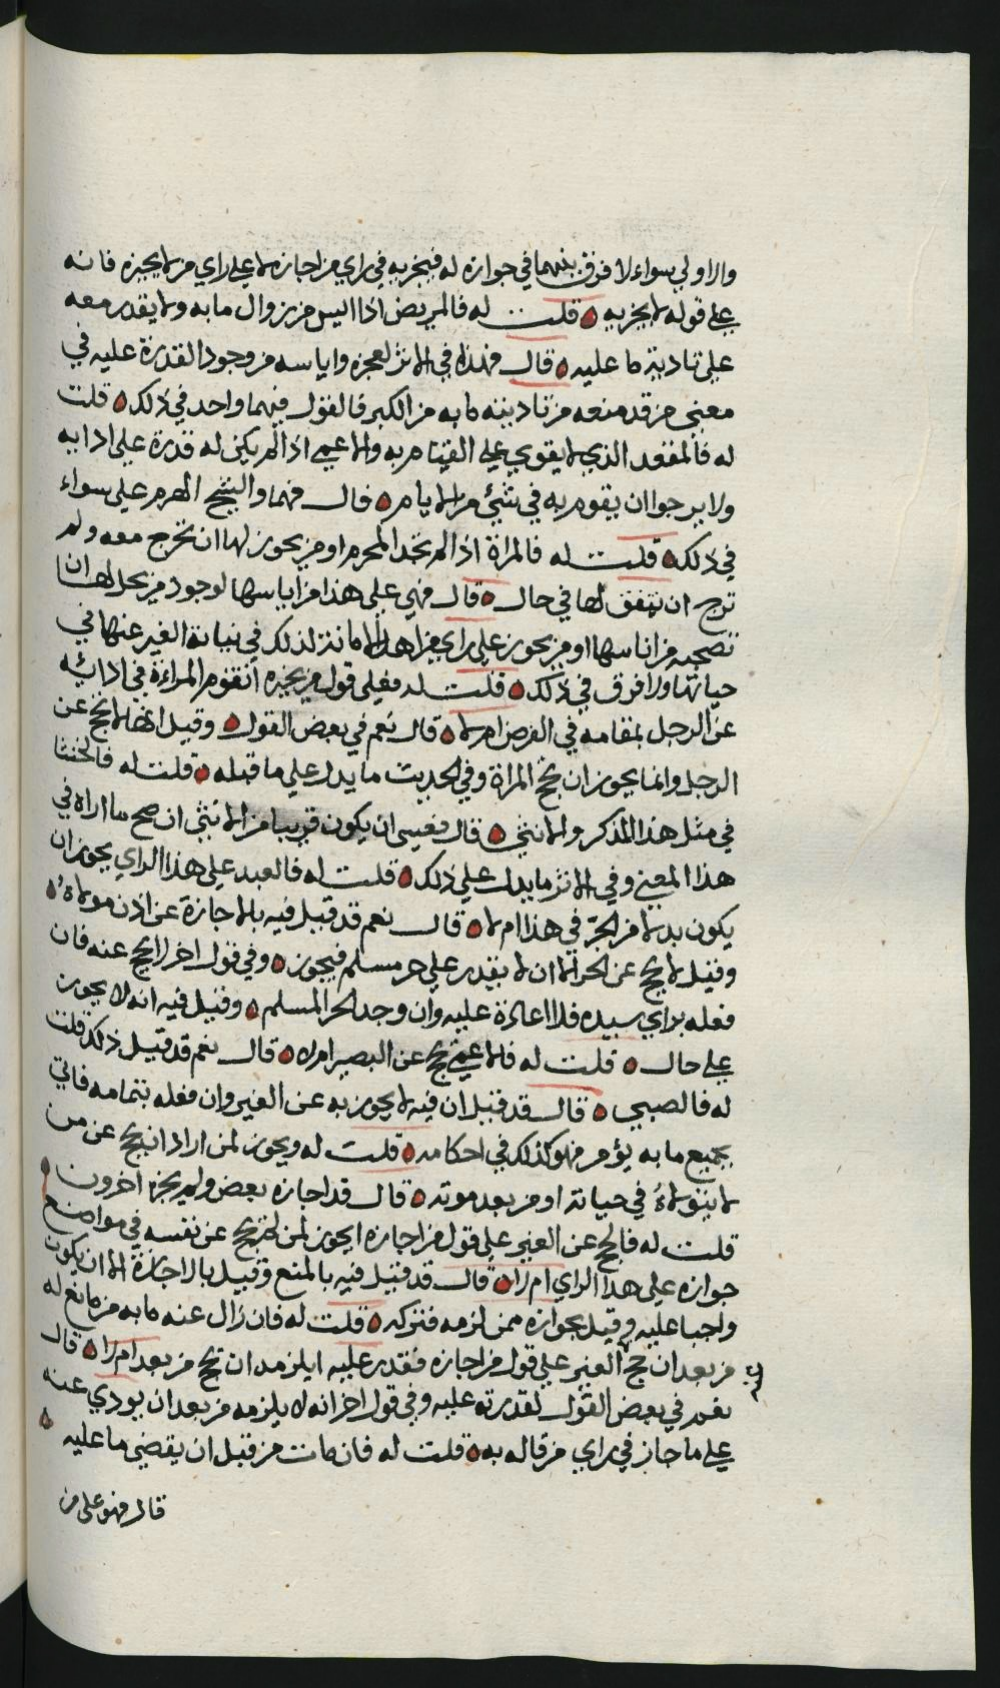 والاولى سواء لا فرق بينهما في جوازه له فيجزيه في راي من اجازه لا على راي من لا يجيزه فانه
على قوله لا يجزيه ۵ قلت له فالمريض اذا ايس من زوال ما به ولا يقدر معه
على تادية ما عليه ۵ قال فهذا في الاثر لعجزه واياسه من وجود القدرة عليه في
معنى من قد منعه من تاديته ما به من الكبر فالقول فيهما واحد في ذلك ۵ قلت
له فالمقعد الذي لا يقوى على القيام به والاعمى اذا لم يكن له قدرة على ادايه
ولا يرجوا ان يقوم به في شيء من الايام ۵ قال فهما والشيخ الهرم على سواء
في ذلك ۵ قلت له فالمراة اذا لم تجد المحرم او من يجوز لها ان تخرج معه ولم
ترج ان يتفق لها في حال ۵ قال فهي على هذا من اياسها لوجود من يحل لها ان
تصحبه من اناسها او من يجوز على راي من اهل الامانة لذلك في نيابة الغير عنها في
حياتها ولا فرق في ذلك ۵ قلت له فعلى قول من يجيزه اتقوم المراءة في ادائه
عن الرجل بمقامه في الفرض ام لا ۵ قال نعم في بعض القول ۵ وقيل انها لا تحج عن
الرجل وانما يجوز ان تحج المراة وفي الحديث ما يدل على ما قبله ۵ قلت له فالخنثا
في مثل هذا للذكر والانثى ۵ قال فعسى ان يكون قريبا من الانثى ان صح ما اراه في
هذا المعنى وفي الاثر ما يدل على ذلك ۵ قلت له فالعبد على هذا الراي يجوز ان
يكون بدلا من الحر في هذا ام لا ۵ قال نعم قد قيل فيه بالاجازة عن اذن مولاه ۵
وقيل لا يحج عن الحر الا ان لا يقدر على حر مسلم فيجوز ۵ وفي قول اخر لا يحج عنه فان
فعله براي سيده فلا اعادة عليه وان وجد الحر المسلم ۵ وقيل فيه انه لا يجوز
على حال ۵ قلت له فالاعمى يحج عن البصير ام لا ۵ قال نعم قد قيل ذلك قلت
له فالصبي ۵ قال قد قيل ان فيه لا يجوز به عن الغير وان فعله بتمامه فاتى
بجميع ما به يؤمر فهو كذلك في احكامه ۵ قلت له ويجوز لمن اراد ان يحج عن من
لا يتولاه في حياته او من بعد موته ۵ قال قد اجازه بعض ولم يجزه اخرون ۵
قلت له فالحج عن الغير على قول من اجازه ايجوز لمن لم يحج عن نفسه في مواضع
جوازه على هذا الراي ام لا ۵ قال قد قيل فيه بالمنع وقيل بالاجازة الا ان يكون
واجبا عليه وقيل بجوازه ممن لزمه فتركه ۵ قلت له فان زال عنه ما به من مانع له
من بعد ان حج الغير على قول من اجازه فقدر عليه ايلزمه ان يحج من بعد ام لا ۵ قال
نعم في بعض القول لقدرته عليه وفي قول اخر انه لا يلزمه من بعد ان يودي عنه
على ما جاز في راي من قاله به ۵ قلت له فان مات من قبل ان يقضي ما عليه ۵
قال فهو على من